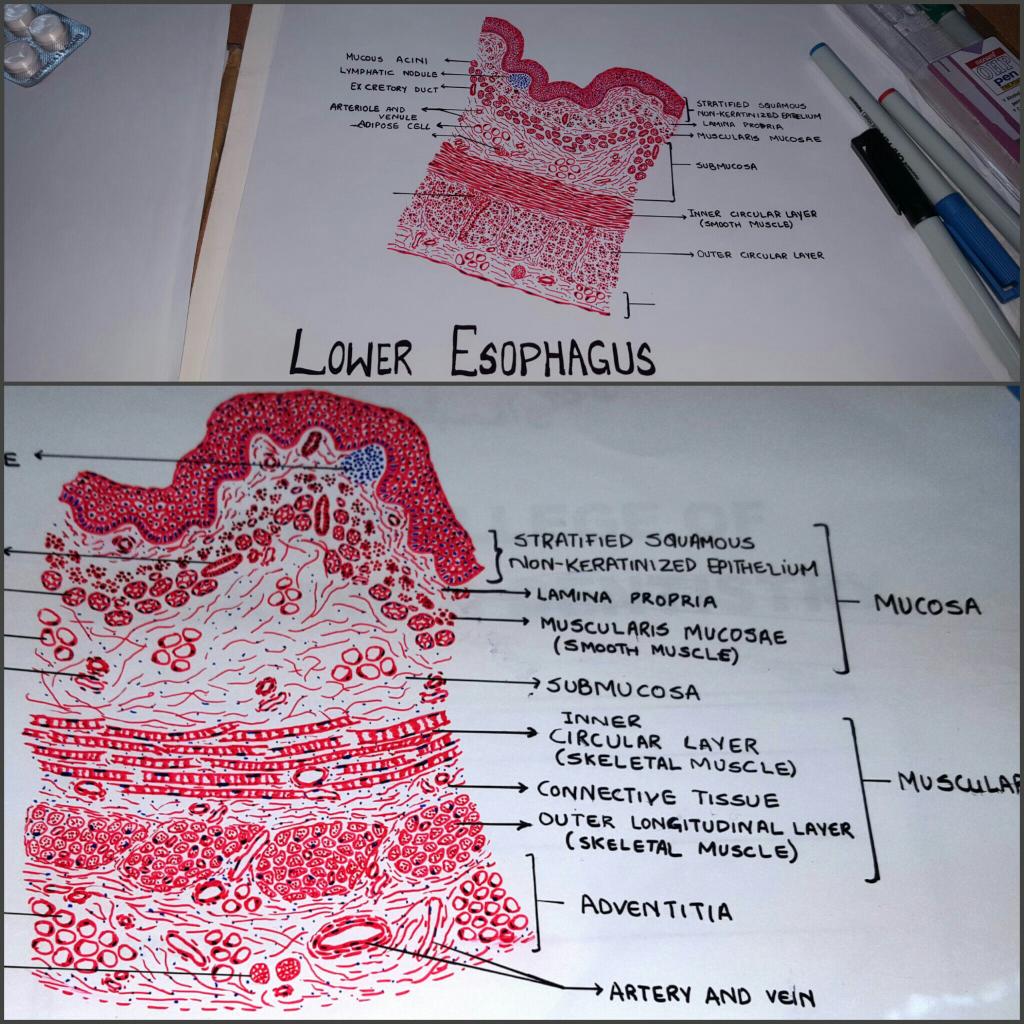 MUCOUS ACINI
LYMPHATIC NODULE
EXCRETORY DUCT
ARTERIOLE AND
VENULE
ADIPOSE CELL
STRATIFIED SQUAMOUS
NON-KERATINIZED EPITELIUM
LAMINA PROPRIA
MUSCULARIS MUCOSAE
SUBMUCOSA
INNER CIRCULAR LAYER
(SMOOTH MUSCLE)
OUTER CIRCULAR LAYER
LOWER ESOPHAGUS
OHP
pen
E
STRATIFIED SQUAMOUS
NON-KERATINIZED EPITHELIUM
LAMINA PROPRIA
MUSCULARIS MUCOSAE
(SMOOTH MUSCLE)
MUCOSA
SUBMUCOSA
INNER
CIRCULAR LAYER
(SKELETAL MUSCLE)
CONNECTIVE TISSUE
OUTER LONGITUDINAL LAYER
(SKELETAL MUSCLE)
MUSCULAR
ADVENTITIA
ARTERY AND VEIN